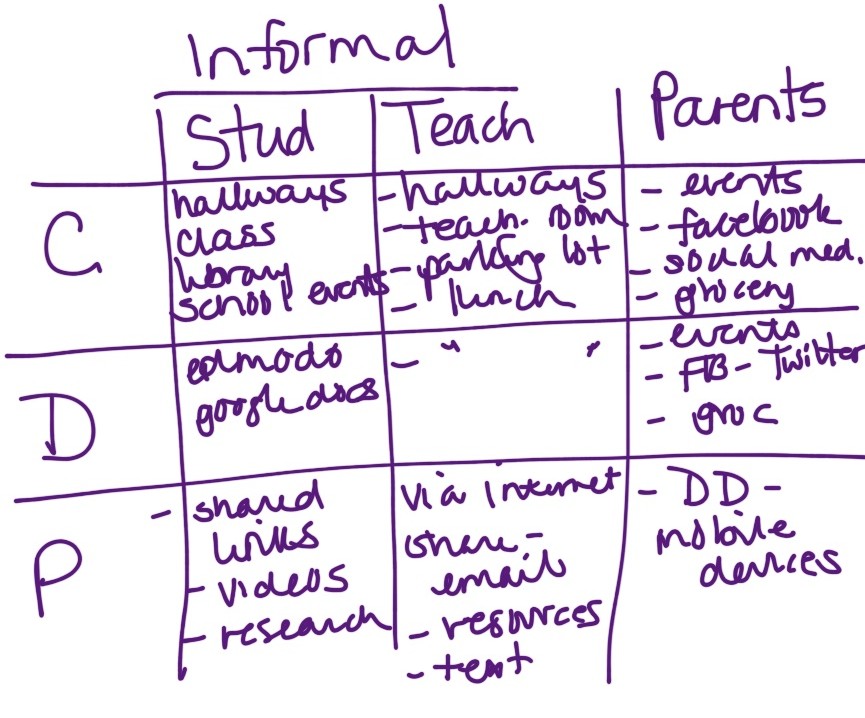 Informal
Stud Teach Parents
C
hallways
class
library
school events
- hallways
- teach. room
- parking lot
- lunch
- events
- facebook
- social med.
- grocery
D
edmodo
google docs
- " "
- events
- FB - Twitter
- groc
P
- shared
links
- videos
- research
via internet
share -
email
- resources
- text
- DD -
mobile
devices